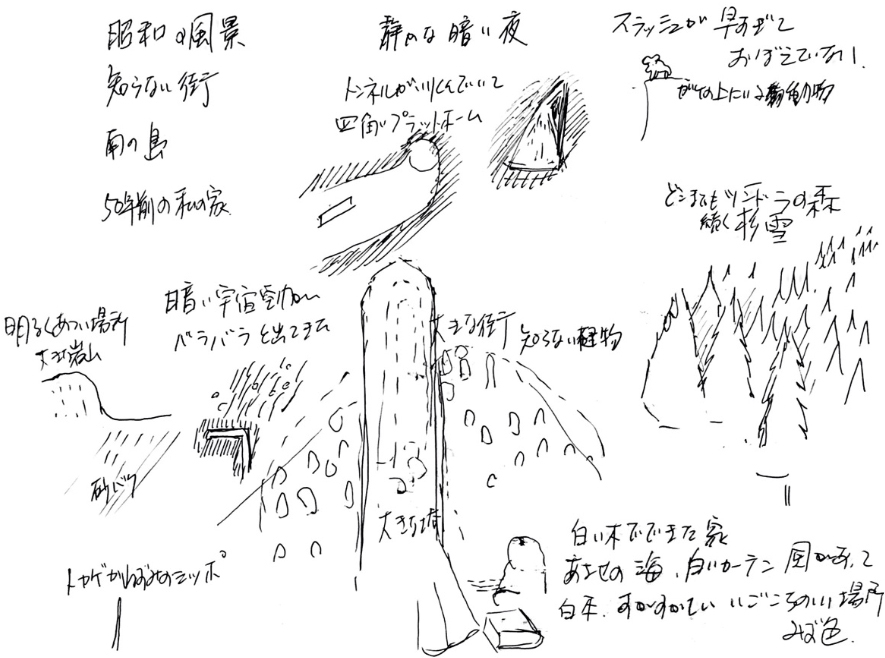 昭和の風景
知らない街
南の島
50年前の私の家
静かな暗い夜
トンネルが
四角いプラットホーム
スラッシュが早すぎて
おぼえていない
がけの上にいる動物
どこまでもツンドラの森
続く 杉 雪
明るくあつい場所
大きな岩山
砂バク
暗い宇宙空カン
バラバラと出てきた
大きな街 知らない植物
大きな塔
トカゲかねずみのシッポ
白い木でできた家
の海、白いカーテン 風があって
いごこちのいい場所
みず色